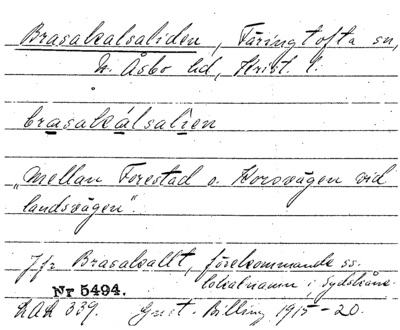 Brasakalsaliden, Färingtofta sn,
N. Åsbo hd, Krist. l.
brasakálsalien
"mellan Forestad o. Korsvägen vid
landsvägen".
Jfr Brasakallt, förekommande ss.
lokalnamn i Sydskåne.
Nr 5494.
LAL 339. Gust. Billing 1915-20.